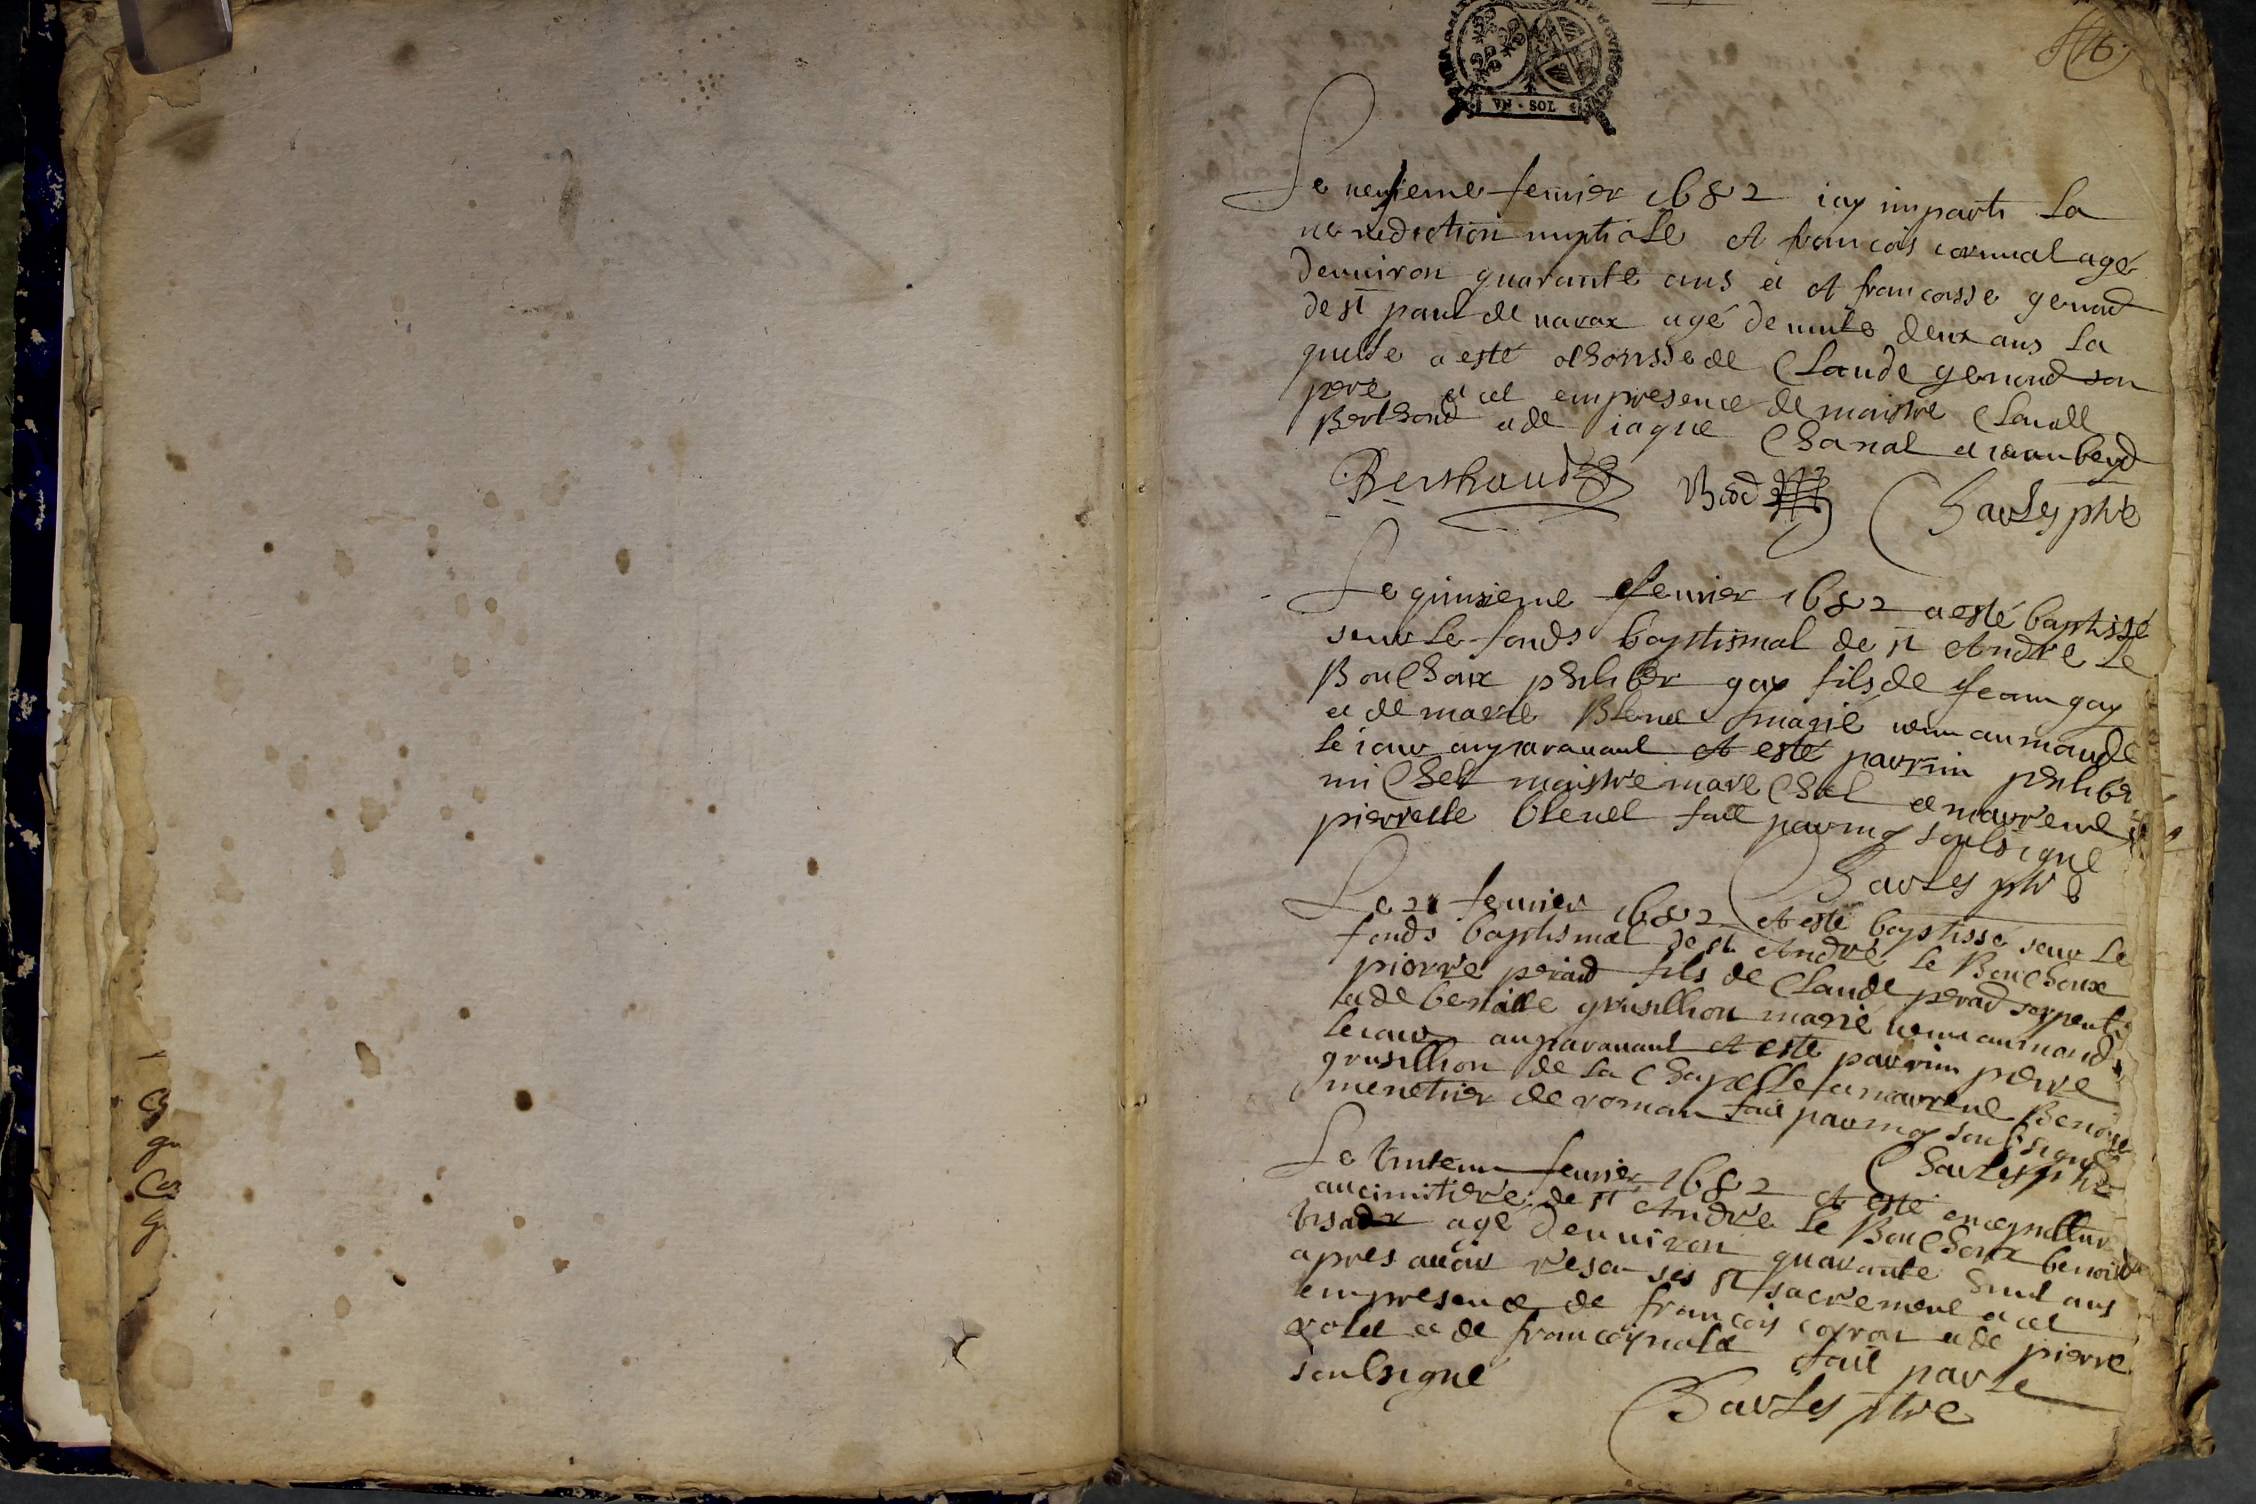 VN · SOL
Le neufieme feurier 1682 iay imparti La
benediction nuptiale A francois agé
denuiron quarante ans et A francoisse genod
de st paul de uarax agé de uinte deux ans La
quelle a esté othorissé de Claude genond son
pere et cet empresence de maistre Claude
Berthond et de iaque Chanal et
Berthaud Charles ptre
Le quinzieme feurier 1682 a esté baptissé
seur Le fonds baptismal de st Andre Le
Bouchoux philiber gay fils de Jean gay
et de marie Blenet marié uenu au monde
le iour auparauant A esté parrin philiber
michel maistre mareschal et marreine
pierrette blenet fait par moy soubsigné
Charles ptre
Le 21 feurier 1682 A esté baptissé seur Le
fonds baptismal de st Andre Le Bouchoux
pierre peraud fils de Claude peraud
et de benoitte grusillion marié uenu au monde
le iour auparauant A esté parrin pierre
grusillion de La Chapelle et marreine Benoite
menetrier de roman fait par moy soubsigné
Charles ptre
Le feurier 1682 A esté
au cimitiere de st Andre Le Bouchoux benoist
agé denuiron quarante huit ans
apres auoir resu ses st sacrement et cet
empresence de francois et de pierre
et de francois fait par Le
soubsigné
Charles ptre